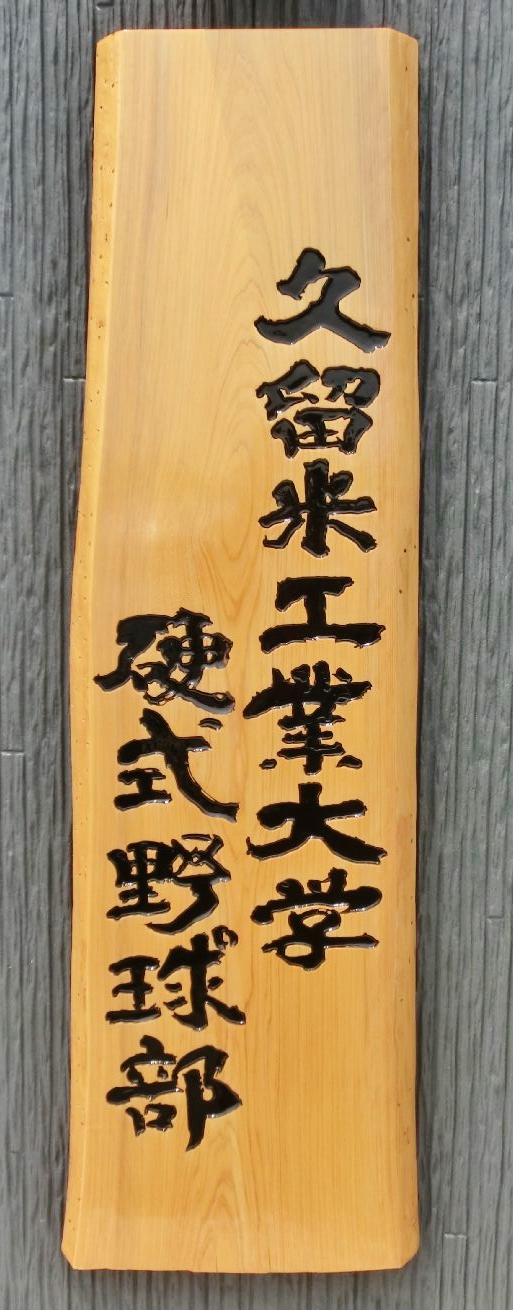 久留米工業大学
硬式野球部